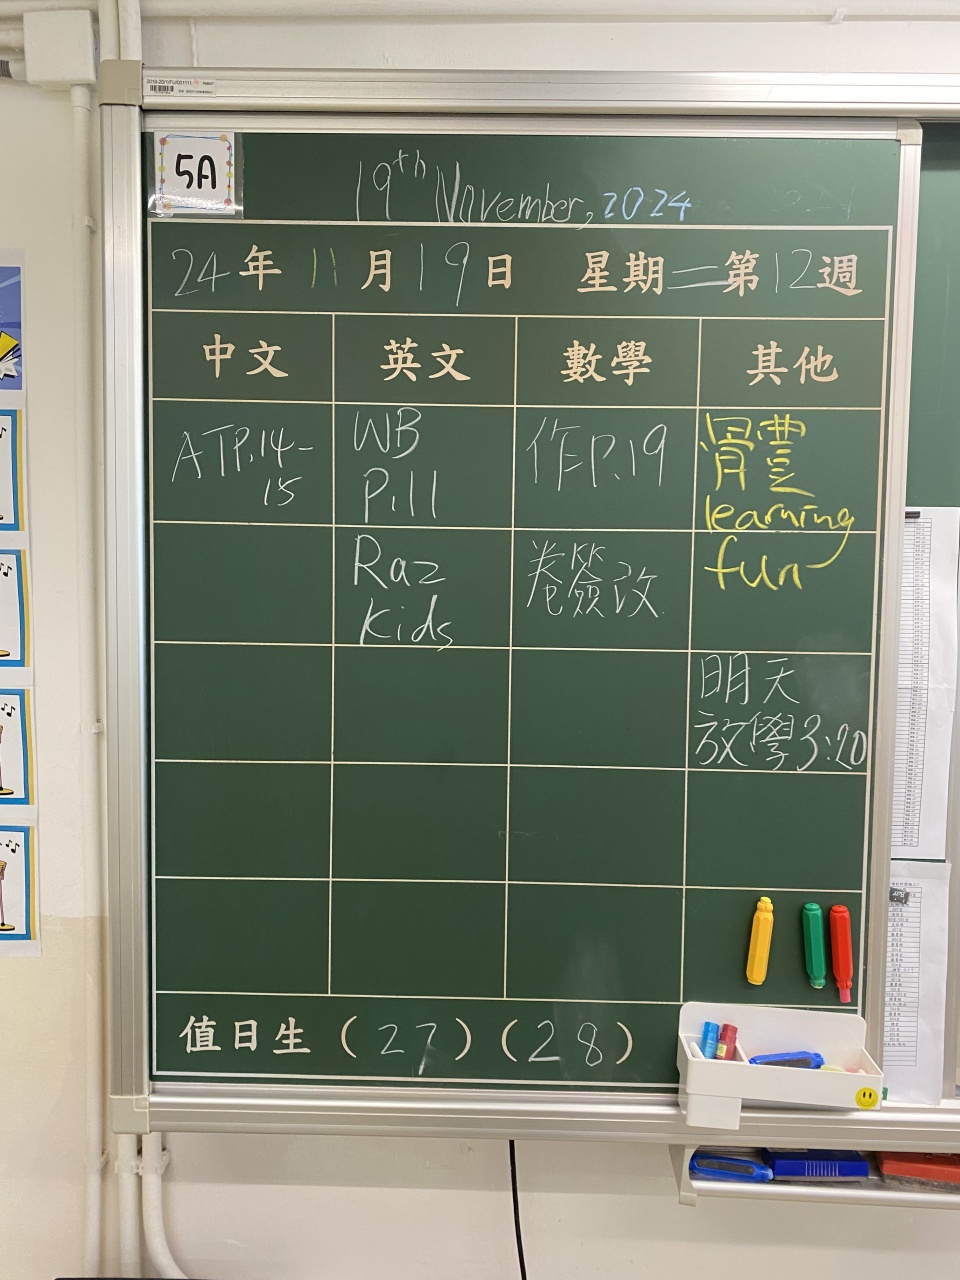 5A
19th November, 2024
24年 11月19日 星期二第12週
中文 英文 數學 其他
ATP.14-15
WB
P.11
作P.19
learning
fun
Raz
Kids
卷簽改
明天
放學3:20
值日生 (27)(28)